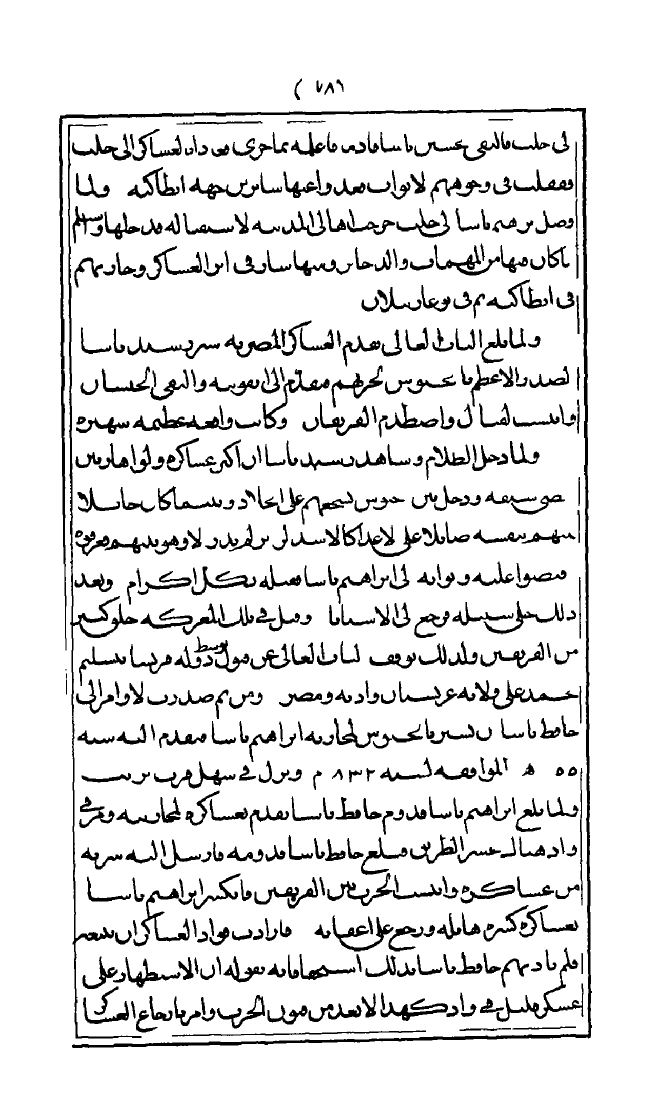 ( ٧٨٦
الى حلب فالتقى بحسين باشا قادما فاعلمه بما جرى معه دان العساكر الى حلب
فقفلت في وجوههم الابواب فعدوا عنها سائرين جهة انطاكيه ولما
وصل ابرهيم باشا الى حلب خرج اهالي المدينه لاستقباله فدخلها واستلم
ما كان فيها من المهمات والذخائر ومنها سار في اثر العساكر وحاربهم
في انطاكيه ثم في بوغاز بيلان
ولما بلغ الباب العالي تقدم العساكر المصريه سير رشيد باشا
الصدر الاعظم بالجيوش لحربهم فتقدم الى قونيه والتقى الجيشان
وانتشب القتال واصطدم الفريقان وكانت واقعه عظيمه شهيره
ولما دخل الظلام وشاهد رشيد باشا ان اكثر عساكره ولوا هاربين
نضى سيفه ودخل بين الجيوش يشجعهم على الجلاد وبينما كان جائلا
بينهم بنفسه صائلا على الاعدا كالاسد لم يدر الا وهو بينهم فعرفوه
فقبضوا عليه واتوا به الى ابراهيم باشا فقبله بكل اكرام وبعد
ذلك خلى سبيله ورجع الى الاستانا وقتل في تلك المعركه خلق كثير
من الفريقين ولذلك توقف الباب العالي عن قبول توسط دوله فرنسا بتسليم
محمد علي ولاية عربستان وادنه ومصر ومن ثم صدرت الاوامر الى
حافظ باشا ان يسير بالجيوش لمحاربة ابراهيم باشا فتقدم اليه سنه
٥٥ ه الموافقه لسنه ٨٣٢ م ونزل في سهل قرب نزيب
ولما بلغ ابراهيم باشا قدوم حافظ باشا تقدم بعساكره لمحاربته ومر في
واد هناك عسر الطريق فبلغ حافظ باشا قدومه فارسل اليه سريه
من عساكره وانتشب الحرب بين الفريقين فانكسر ابراهيم باشا
بعساكره كسره هائله ورجع على اعقابه فارادت قواد العساكر ان تتبعه
فلم ياذن لهم حافظ باشا بذلك استخفافا به بقوله ان الاستظهار على
عسكر قليل في واد كهذا لا يعد من فنون الحرب وامر بارجاع العساكر